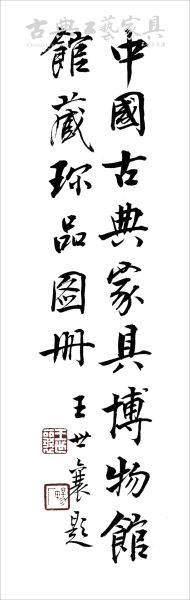 中國古典家具博物館
館藏珎品图册
王世襄题
古典工藝家具